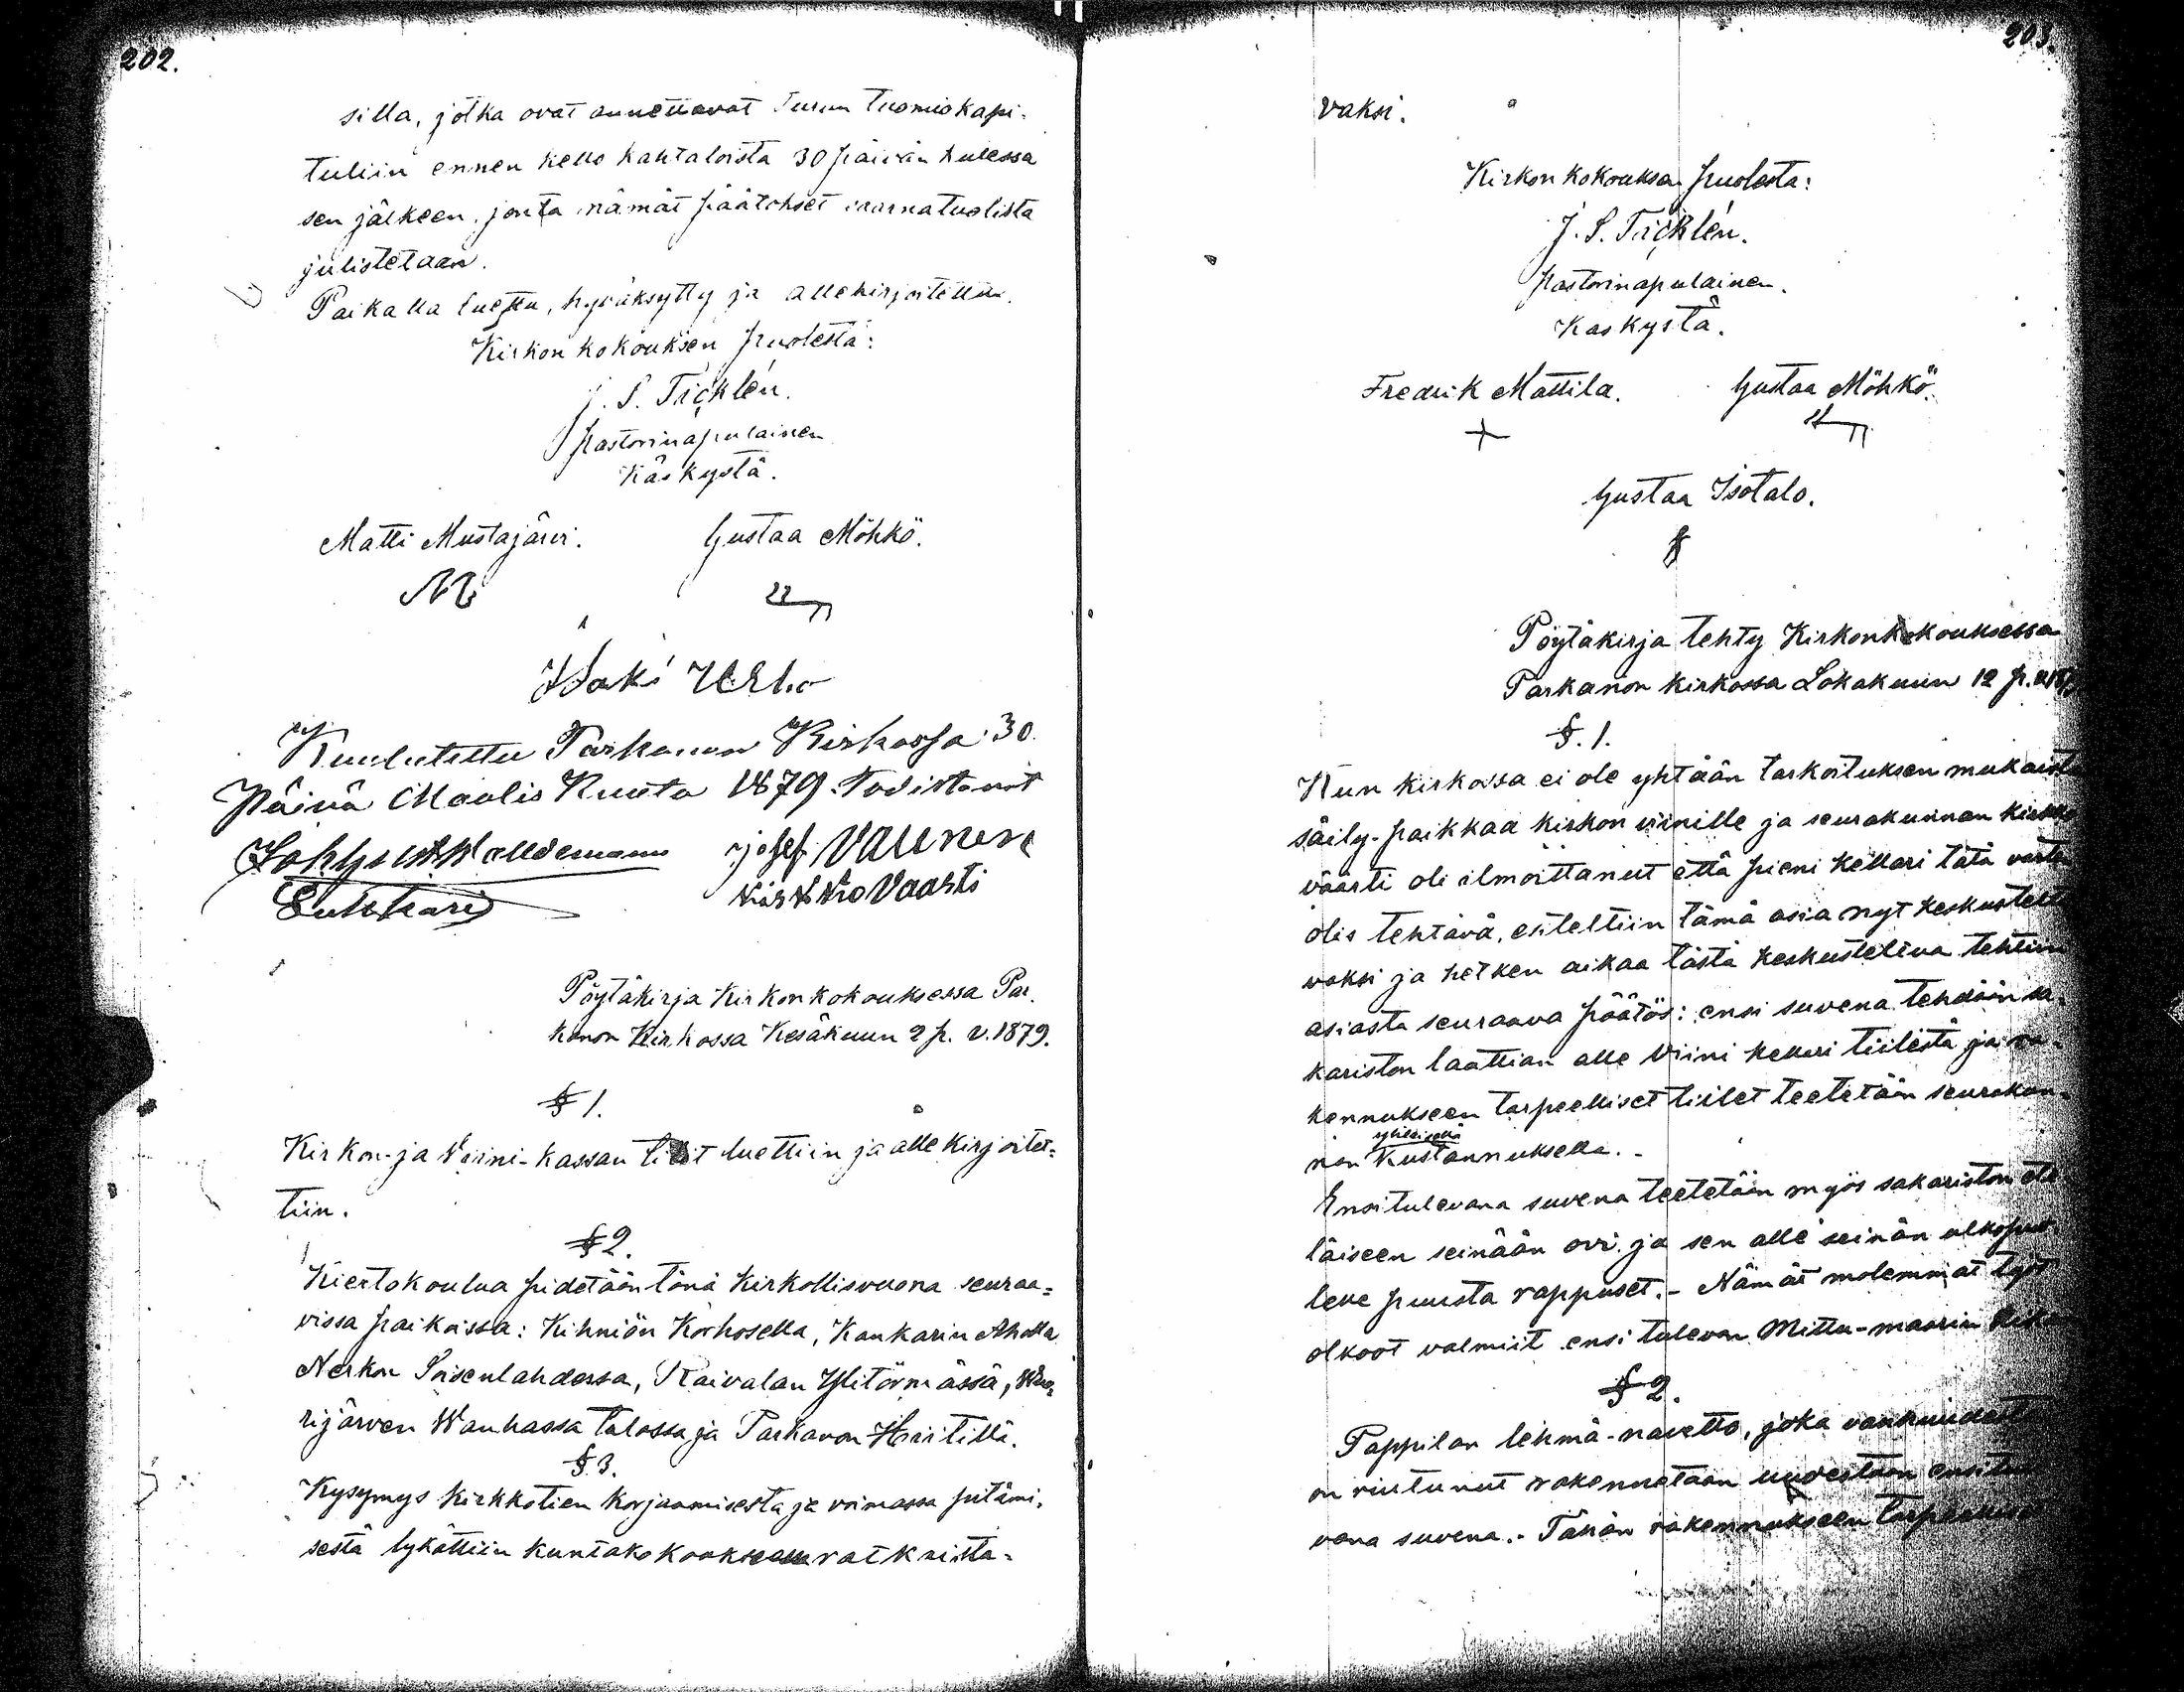 202.
silla, jotka ovat annettavat Turun Tuomiokapi-
tuliin ennen kello kahtatoista 30 päivän kulessa
sen jälkeen, jonta nämät päätökset saarnatuolista
julistetaan.
Paikalla luettu, hyväksytty ja allekirjoitettu.
Kirkonkokouksen puolesta:
J. S. Täcklén.
pastorinapulainen
Käskystä.
Matti Mustajärvi. Gustaa Möhkö.
Isaki Urho
Kuulutettu Parkanon Kirkossa 30
Päivä Maalis Kuuta 1879. Todistavat
josef
Kirkko Vaarti
Pöytäkirja Kirkonkokouksessa Par-
kanon Kirkossa Kesäkuun 2 p. v. 1879.
§ 1.
Kirkon- ja Viini-kassan tilit luettiin ja allekirjoitet-
tiin.
§ 2.
Kiertokoulua pidetään tänä Kirkollisvuona seuraa-
vissa paikoissa: Kihniön Korhosella, Kankarin Aholla
Nerkon Poisenlahdessa, Raivalan Ylitörmässä, Wuo-
rijärven Wanhassa talossa ja Parkanon
§ 3.
Kysymys kirkkotien korjaamisesta ja voimassa pitämi-
sestä lykättiin kuntakokouksessa ratkaista-
203.
vaksi.
Kirkonkokouksen puolesta:
J. S. Täcklén.
pastorinapulainen.
Käskystä.
Fredrik Mattila. Gustaa Möhkö.
Gustaa Isotalo.
Pöytäkirja tehty Kirkonkokouksessa
Parkanon kirkossa Lokakuun 12 p.
§. 1.
Kun kirkossa ei ole yhtään tarkoituksen mukaista
säily-paikkaa kirkon viinille ja seurakunnan kirkko
väärti oli ilmoittanut että pieni kellari tätä varten
olis tehtävä, esiteltiin tämä asia nyt keskustelta
vaksi ja hetken aikaa tästä keskusteltua tehtiin
asiasta seuraava päätös: ensi suvena tehdään sa-
kariston laattian alle Viini kellari tiilistä ja ra-
kennukseen tarpeelliset tiilet teetetään seurakun-
nan yhteisellä Kustannuksella. -
Ensitulevana suvena teetetään myös sakariston ete
läiseen seinään ovi ja sen alle seinän ulkopuo
lelle puusta rappuset. - Nämät molemmat työt
olkoot valmiit ensi tulevan Mittu-maarin
§ 2.
Pappilan lehmä-navetto, joka vanhuudesta
on riutunut rakennetaan uudestaan ensitule
vana suvena. - Tähän rakennukseen tarpeelliset